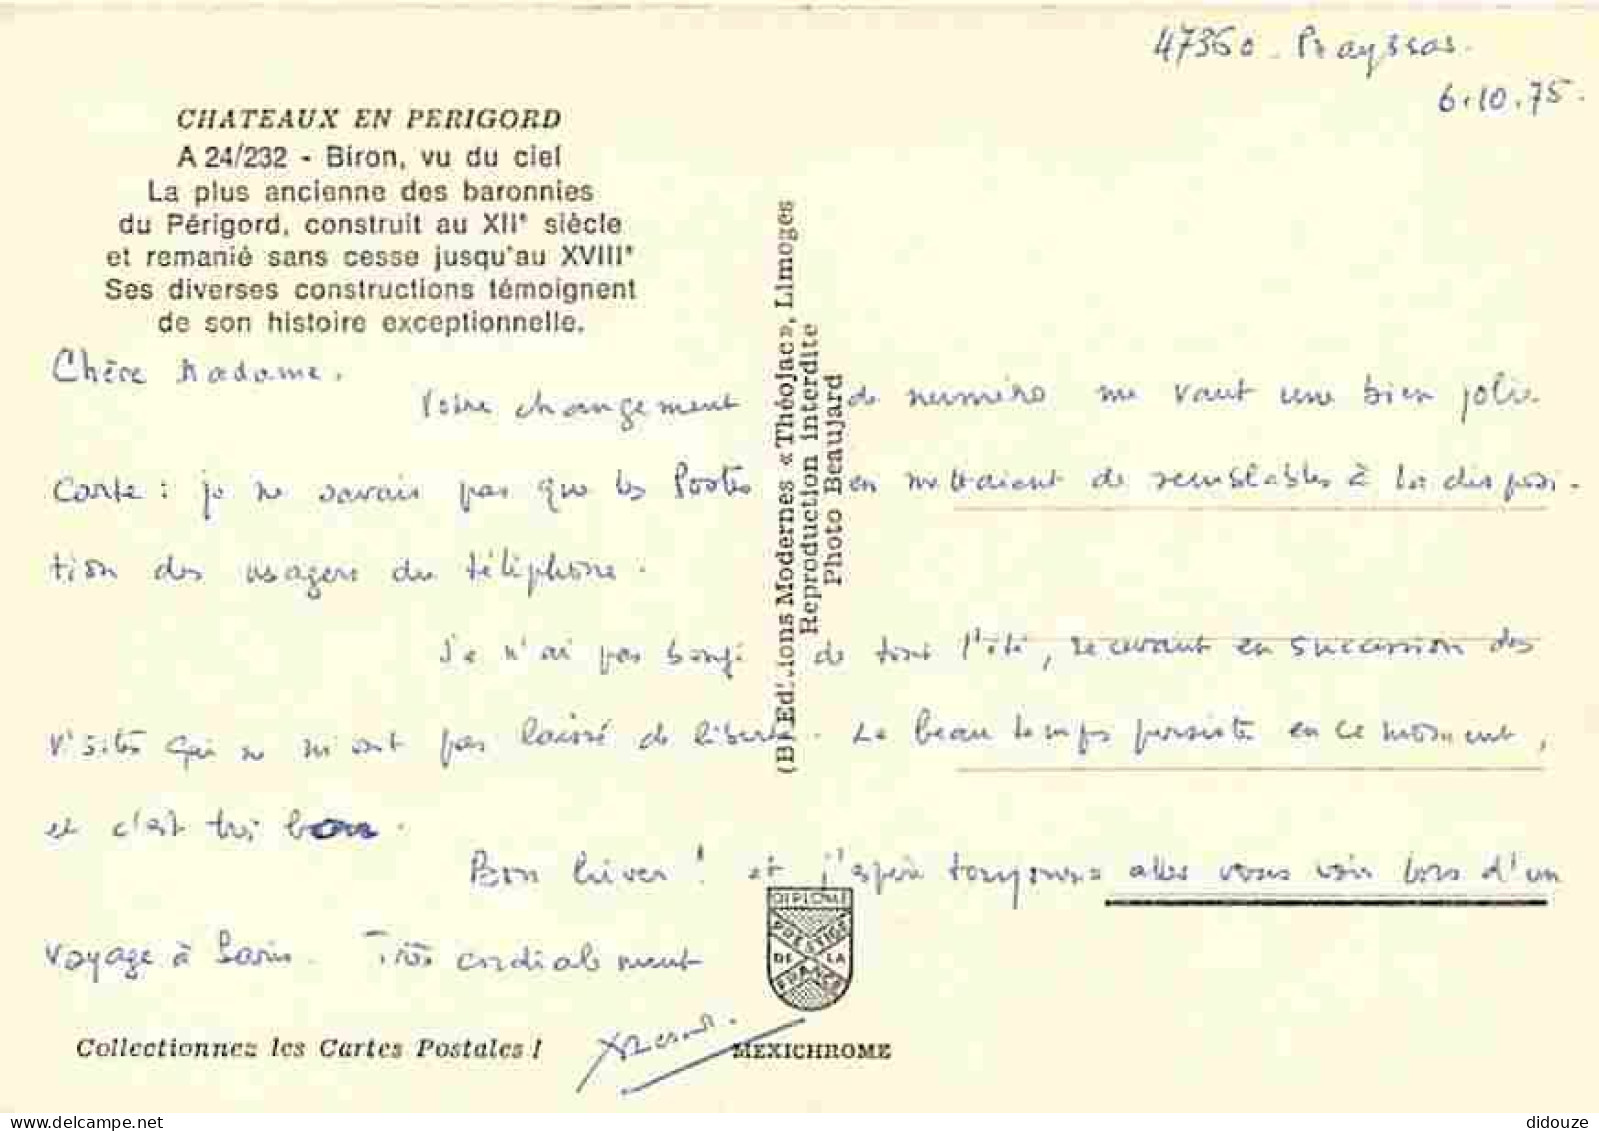 47360 - Prayssas.
6.10.75.
CHATEAUX EN PERIGORD
A 24/232 - Biron, vu du ciel
La plus ancienne des baronnies
du Périgord, construit au XIIe siècle
et remanié sans cesse jusqu'au XVIIIe
Ses diverses constructions témoignent
de son histoire exceptionnelle.
Chère Madame.
Votre changement de numéro me vaut une bien jolie
carte : je ne savais pas que les Postes en mettaient de semblables à la disposi-
tion des usagers du téléphone.
Je n'ai pas bougé de tout l'été, recevant en succession des
visites qui ne m'ont pas laissé de liberté. Le beau temps persiste en ce moment,
et c'est très bon.
Bon hiver ! et j'espère toujours aller vous voir lors d'un
voyage à Paris. Très cordialement
(B) Editions Modernes «Théojac», Limoges
Reproduction interdite
Photo Beaujard
DIPLOME
PRESTIGE
DE LA
FRANCE
Collectionnez les Cartes Postales !
MEXICHROME
didouze